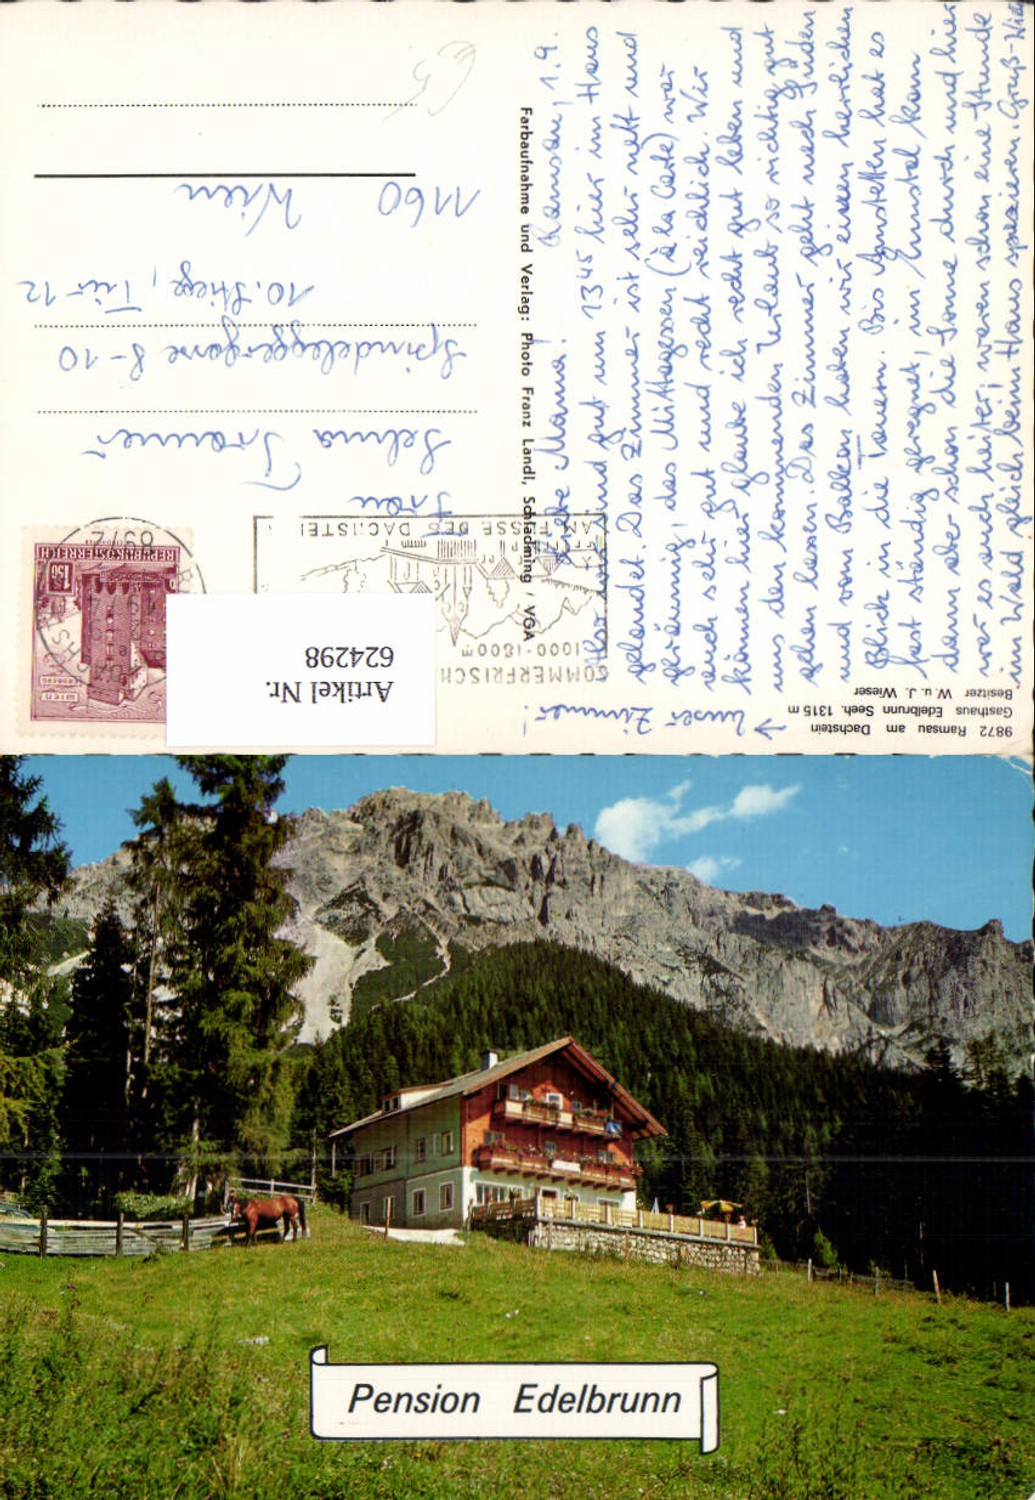 9872 Ramsau am Dachstein
Gasthaus Edelbrunn Seeh. 1315 m
Besitzer W. u. J. Wieser
Farbaufnahme und Verlag: Photo Franz Landl, Schladming / VGA
Ramsau, 1.9.
Liebe Mama!
Also wir sind gut um 13 45 hier im Haus
gelandet. Das Zimmer ist sehr nett und
geräumig, das Mittagessen (à la Carte) war
auch sehr gut und recht reichlich. Wir
können hier glaube ich recht gut leben und
uns den kommenden Urlaub so richtig gut
gehen lassen. Das Zimmer geht nach Süden
und vom Balkon haben wir einen herrlichen
Blick in die Tauern. Bis Amstetten hat es
fast ständig geregnet, im Ennstal kam
dann aber schon die Sonne durch und hier
war es auch heiter, waren schon eine Stunde
im Wald gleich beim Haus spazieren. Gruß
unser Zimmer!
SOMMERFRISCH
1000-1800m
AM FUSSE DES DACHSTEI
REPUBLIK ÖSTERREICH
1.50
WIEN
Frau
Selma
Spindeleggergasse 8-10
10. Stiege, Tür 12
1160 Wien
Artikel Nr.
624298
Pension Edelbrunn